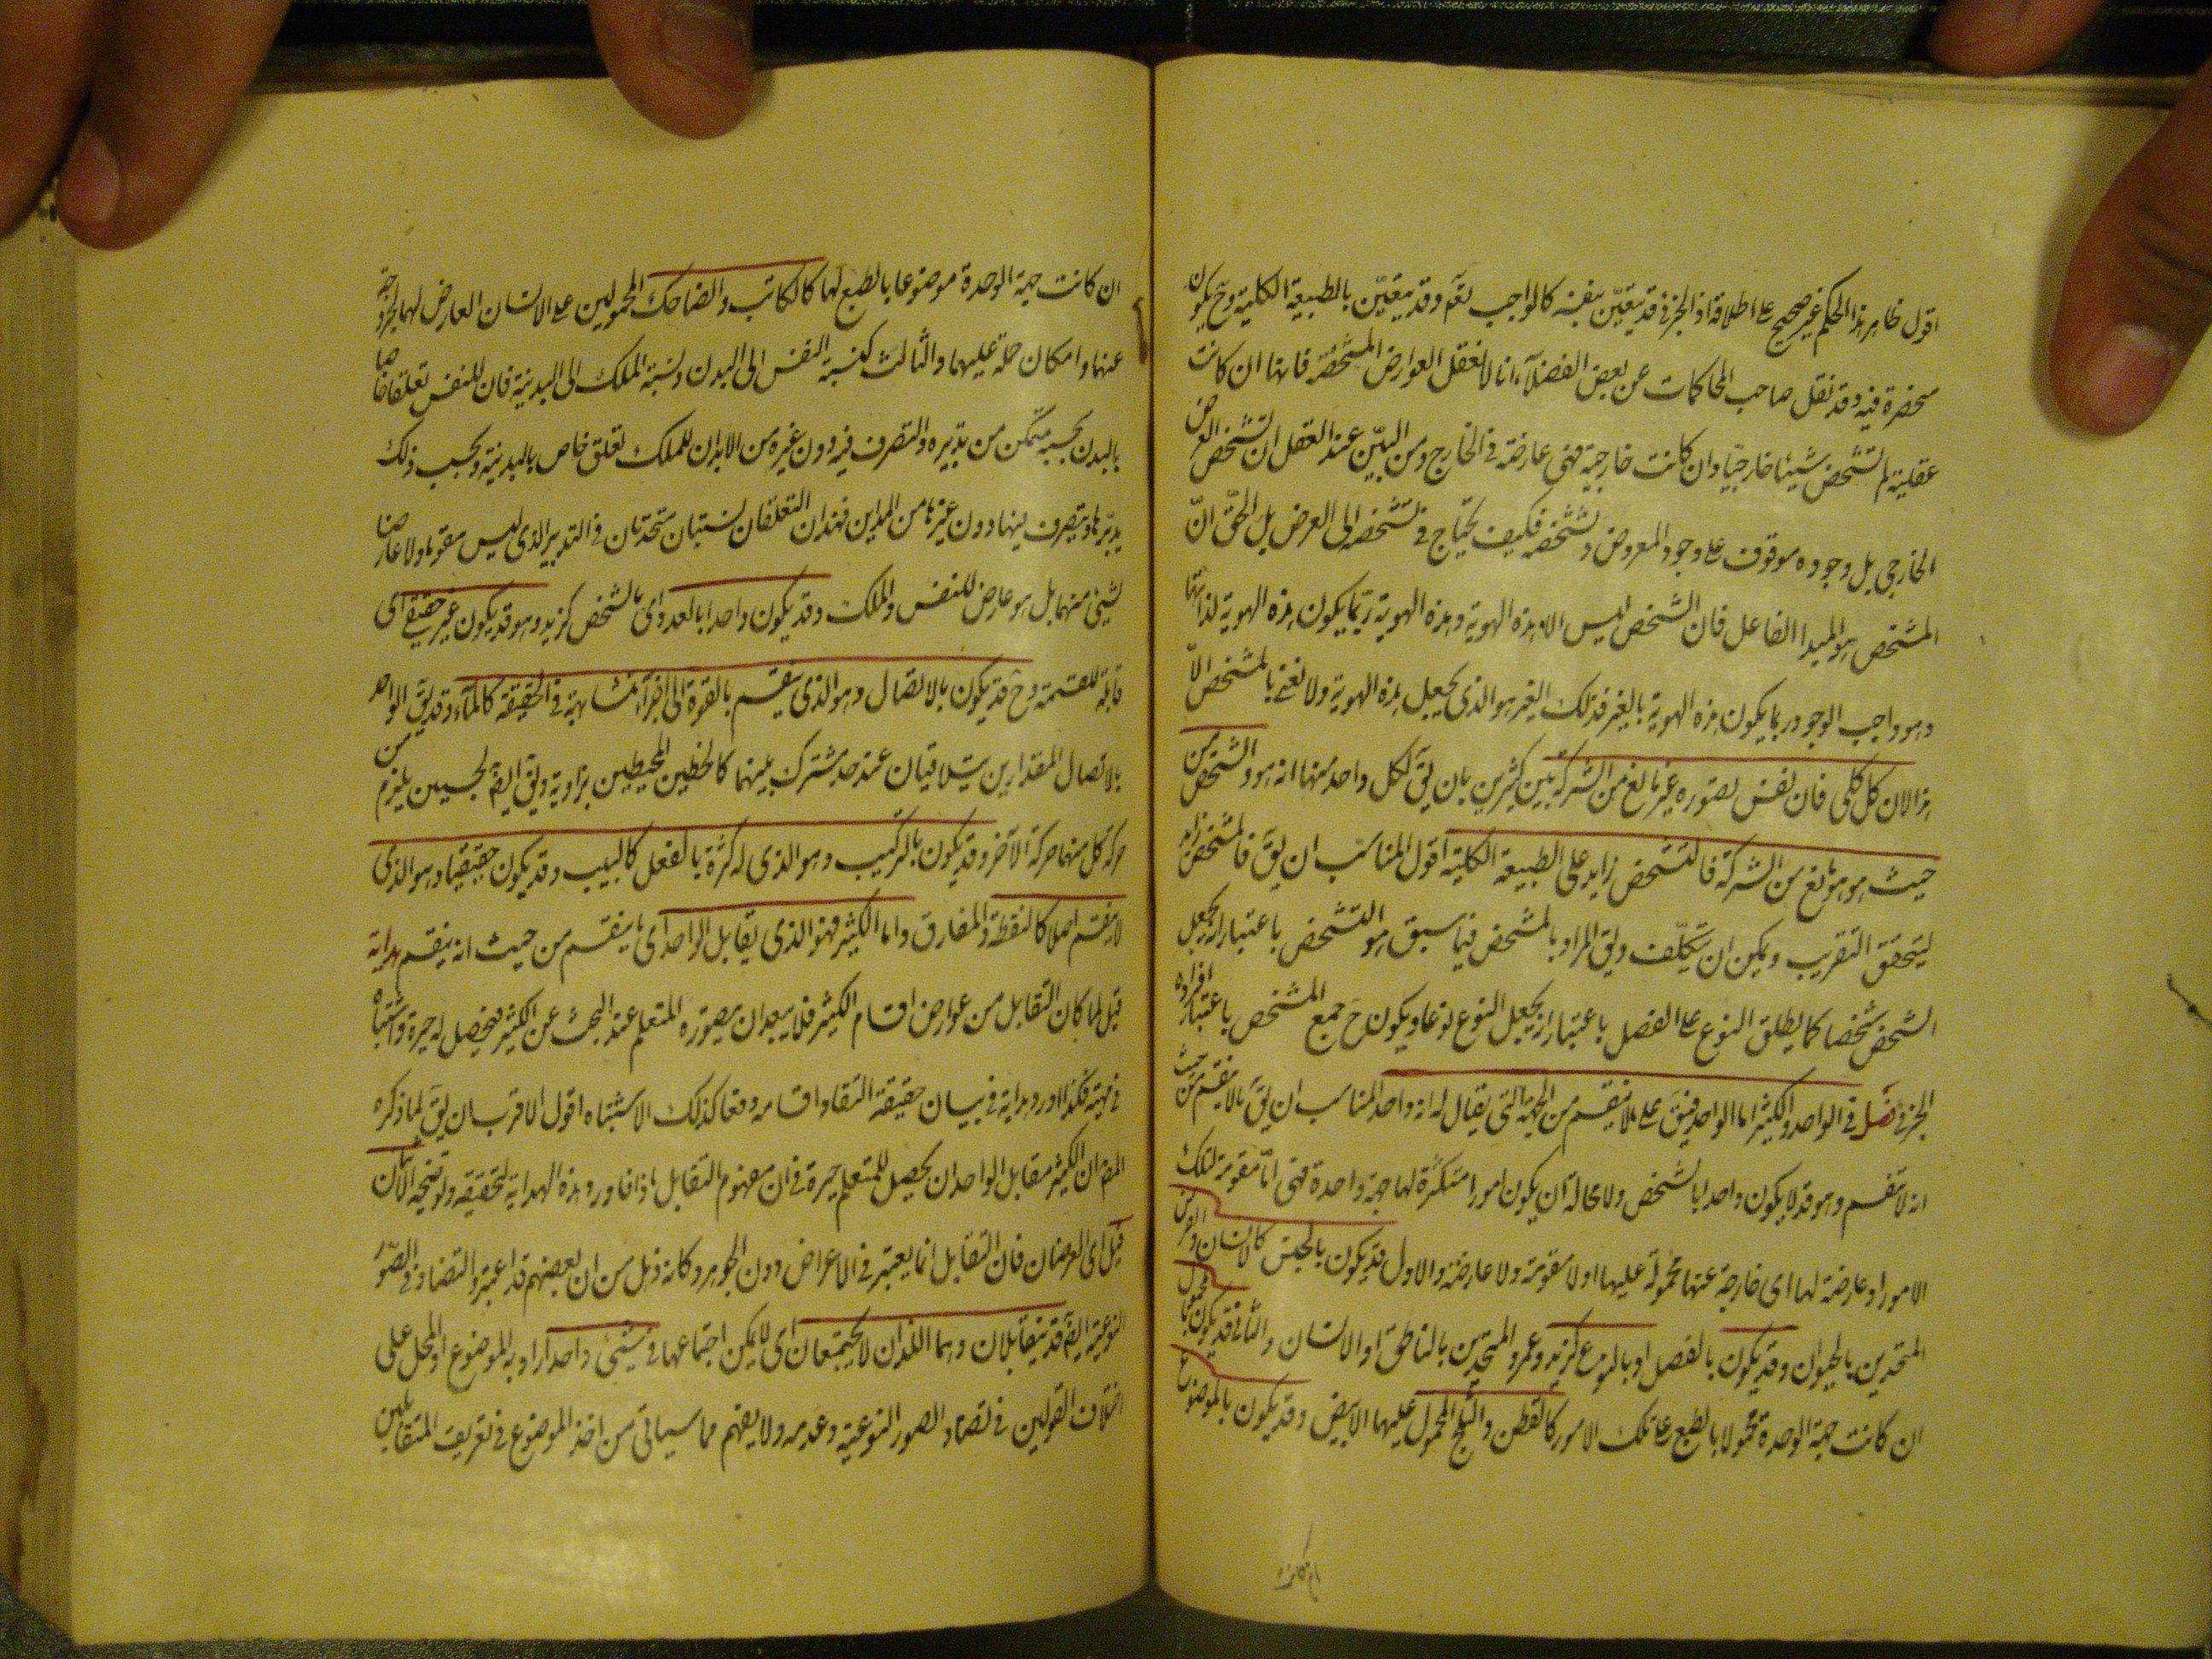 اقول ظاهر هذا الحكم غير صحيح على اطلاقه اذ الجزئى قد يتعين بنفسه كالواجب تعم وقد يتعين بالطبيعة الكلية وح يكون
منحصرة فيه وقد نقل صاحب المحاكمات عن بعض الفضلآء انا لا نعقل العوارض المشخصة فانها ان كانت
عقلية لم تشخص شيئا خارجيا وان كانت خارجية فهى عارضة فى الخارج ومن البين عند العقل ان تشخص العرض
الخارجى بل وجوده موقوف على وجود المعروض وتشخصه فكيف يحتاج فى تشخصه الى العرض بل الحق ان
المشخص هو المبدا الفاعل فان الشخص ليس الا هذه الهوية وهذه الهوية ربما يكون هذه الهوية لذاتها
وهو واجب الوجود وربما يكون هذه الهوية بالغير فذلك الغير هو الذى يجعل هذه الهوية ولا نعنى بالمشخص الا
هذا لان كل كلى فان نفس تصوره غير مانع من الشركة بين كثيرين بان يق لكل واحد منها انه هو والشخص من
حيث هو هو مانع من الشركة فالتشخص زايد على الطبيعة الكلية اقول المناسب ان يق فالمشخص زايد
ليتحقق التقريب ويمكن ان يتكلف ويق المراد بالمشخص فيما سبق هو التشخص باعتبار انه يجعل
الشخص شخصا كما يطلق النوع على الفصل باعتبار انه يجعل النوع نوعا ويكون ح جمع المشخص باعتبار افراده
الجزئى فصل فى الواحد والكثير اما الواحد فيق على ما لا ينقسم من الجهة التى يقال له انه واحد المناسب ان يق ما لا ينقسم من حيث
انه لا ينقسم وهو قد لا يكون واحدا بالشخص ولا محالة ان يكون امورا متكثرة لها جهة واحدة فهى اما مقومة لتلك
الامور او عارضة لها اى خارجة عنها محمولة عليها او لا مقومة ولا عارضة والاول قد يكون بالجنس كالانسان والفرس
المتحدين بالحيوان وقد يكون بالفصل او بالنوع كزيد وعمرو المتحدين بالناطق او الانسان والثانى قد يكون بالمحمول
ان كانت جهة الوحدة محمولا بالطبع على تلك الامور كالقطن والثلج المحمول عليهما الابيض وقد يكون بالموضوع
ان كانت
ان كانت جهة الوحدة موضوعا بالطبع لها كالكاتب والضاحك المحمولين على الانسان العارض لهما لخروجه
عنهما وامكان حمله عليهما والثالث كنسبة النفس الى البدن ونسبة الملك الى المدينة فان للنفس تعلقا خاصا
بالبدن بحسبه يتمكن من تدبيره والتصرف فيه دون غيره من الابدان وللملك تعلق خاص بالمدينة وبحسب ذلك
يدبرها ويتصرف فيها دون غيرها من المداين فهذان التعلقان نسبتان متحدتان فى التدبير الذى ليس مقوما ولا عارضا
لشئ منهما بل هو عارض للنفس والملك وقد يكون واحدا بالعدد اى بالشخص كزيد وهو قد يكون غير حقيقى اى
قابلة للقسمة وح قد يكون بالاتصال وهو الذى ينقسم بالقوة الى اجزآء متشابهة فى الحقيقة كالمآء وقد يق الواحد
بالاتصال لمقدارين يتلاقيان عند حد مشترك بينهما كالخطين المحيطين بزاوية ويق ايضا لجسمين يلزم من
حركة كل منهما حركة الآخر وقد يكون بالتركيب وهو الذى له كثرة بالفعل كالبيت وقد يكون حقيقيا وهو الذى
لا ينقسم اصلا كالنقطة والمفارق واما الكثير فهو الذى يقابل الواحد اى ما ينقسم من حيث انه ينقسم هداية
قيل لما كان التقابل من عوارض اقسام الكثير فلا يبعد ان يتصوره المتعلم عند البحث عن الكثير فيحصل له حيرة واشتباه
فى ماهيته فلذا اورد هداية فى بيان حقيقة التقابل واقسامه دفعا لذلك الاشتباه اقول الاقرب ان يق لما ذكره
المص ان الكثير مقابل الواحد ان يحصل للمتعلم حيرة فى ان مفهوم التقابل ماذا فاورد هذه الهداية لتحقيقه وتوضيحه الاثنان
قيل اى العرضان فان التقابل انما يعتبر فى الاعراض دون الجوهر وكانه ذهل من ان بعضهم قد اعتبروا التضاد فى الصور
النوعية ايضا قد يتقابلان وهما اللذان لا يجتمعان اى لا يمكن اجتماعهما فى شئ واحد اراد به الموضوع او المحل على
اختلاف القولين فى تضاد الصور النوعية وعدمه ولا يفهم مما سياتى من اخذ الموضوع فى تعريف المتقابلين